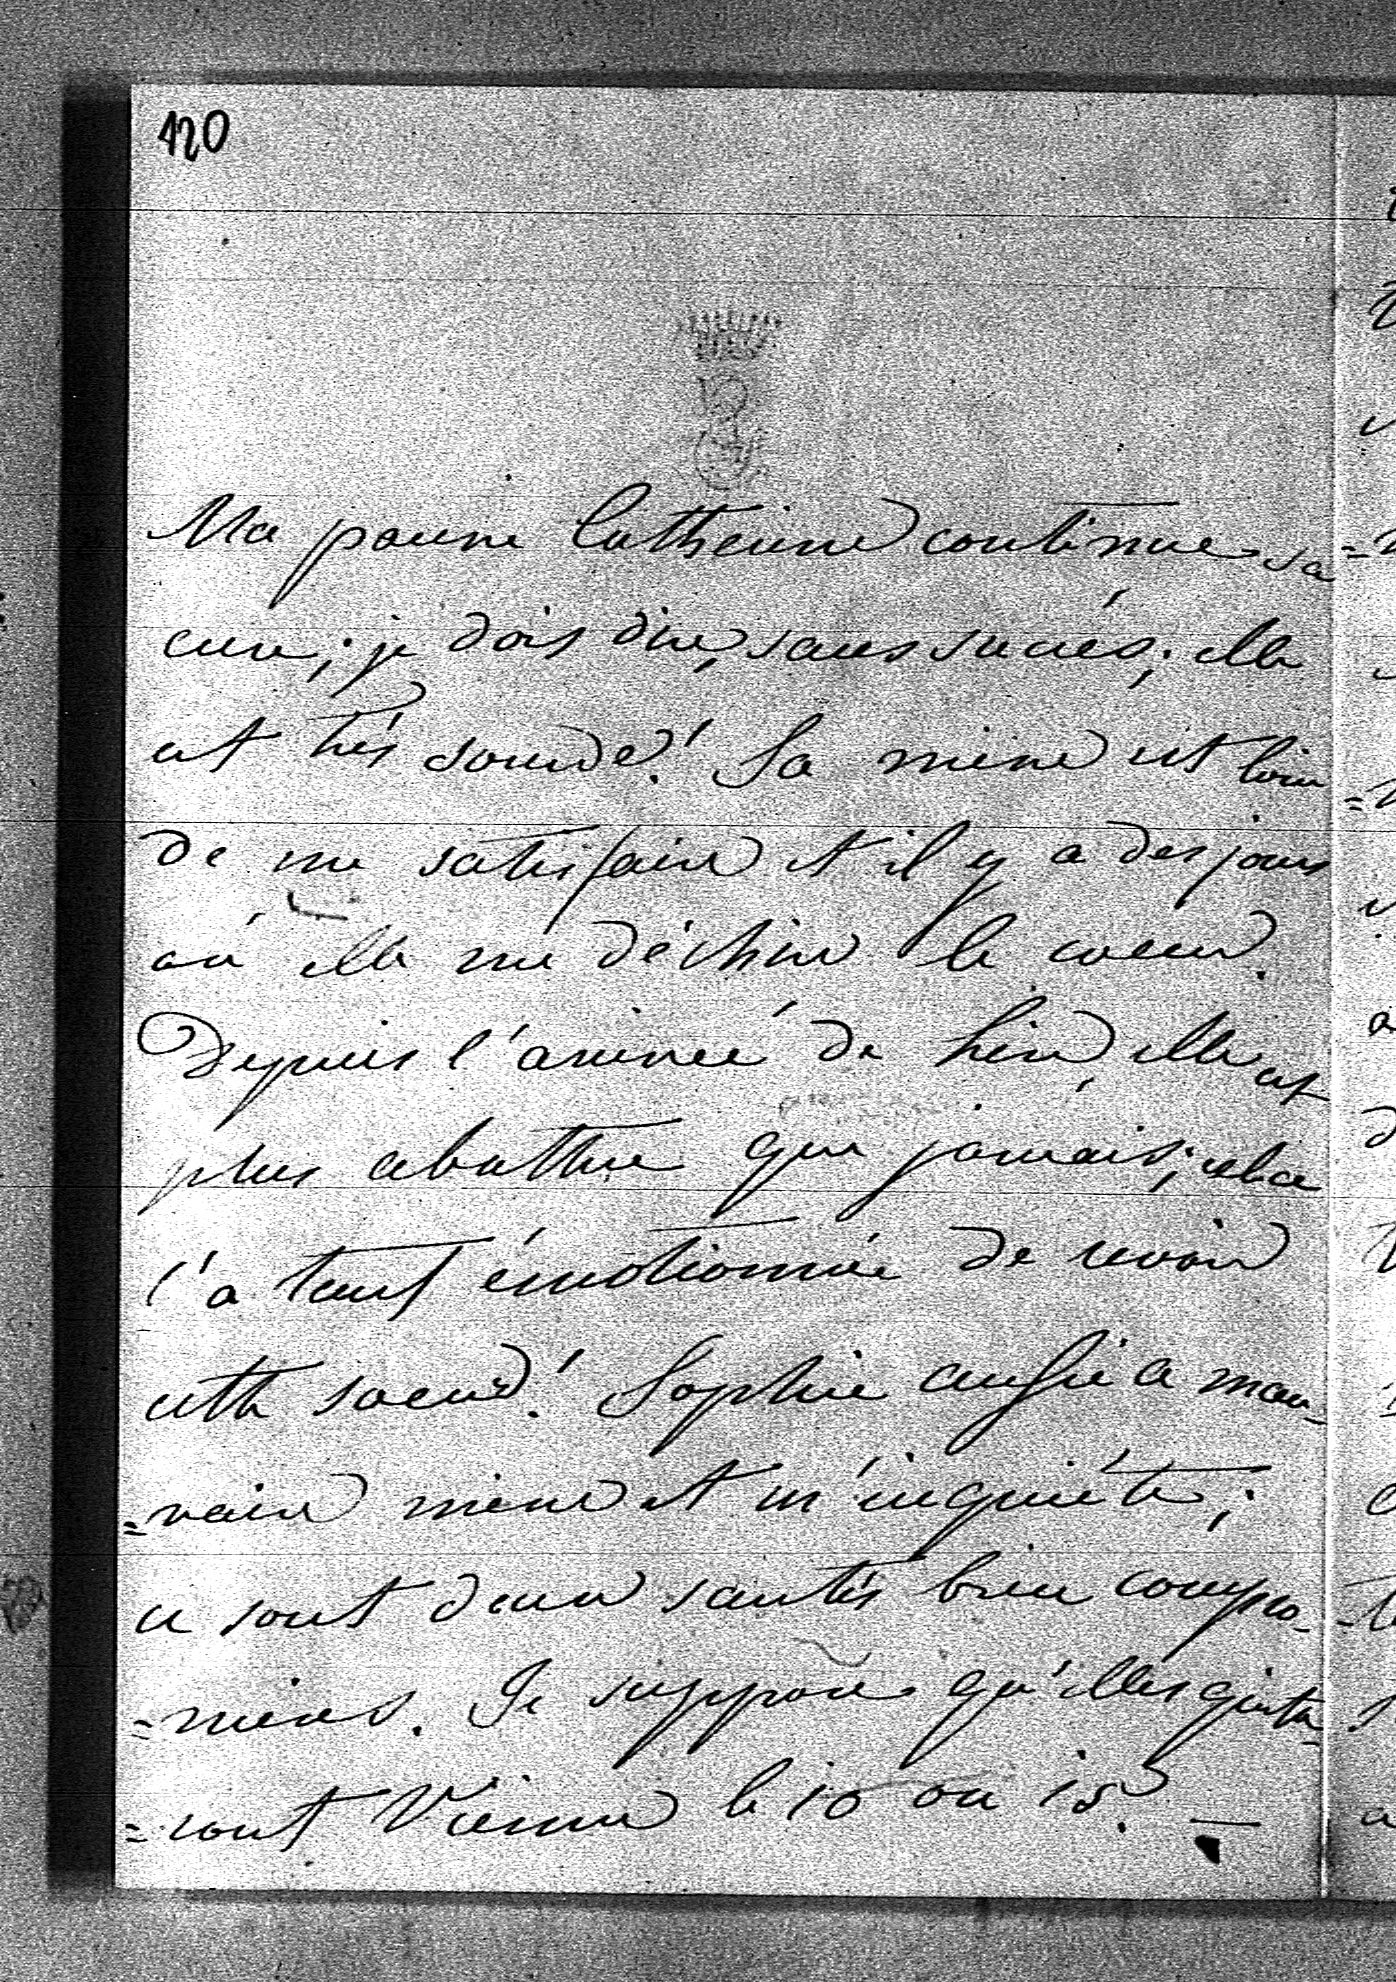 120
Ma pauvre Catherine continue sa
cure; je dois dire, sans succés; elle
est trés sourde! Sa mine est loin
de me satisfaire et il y a des jours
où elle me déchire le coeur.
Depuis l'arrivée de hier, elle est
plus abattue que jamais; cela
l'a tant émotionnée de revoir
cette soeur! Sophie aussi a mau-
=vaise mine et m'inquiéte;
ce sont deux santés bien compro-
=mises. Je suppose qu'elles quitte-
=ront Vienne le 10 ou 15. —